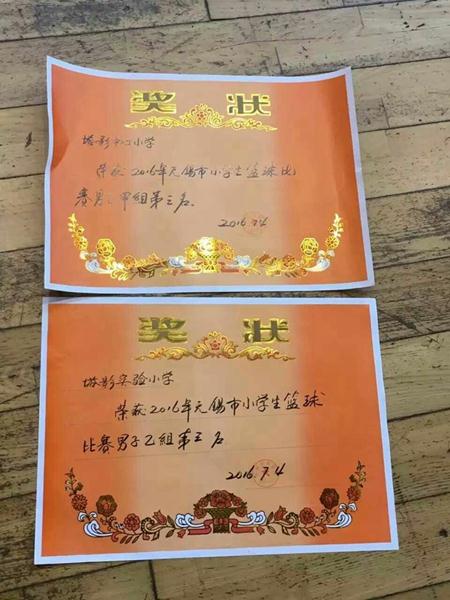 奖状
塔影中心小学
荣获2016年无锡市小学生篮球比
赛男子甲组第三名。
2016.7.4
奖状
塔影实验小学
荣获2016年无锡市小学生篮球
比赛男子乙组第三名
2016.7.4